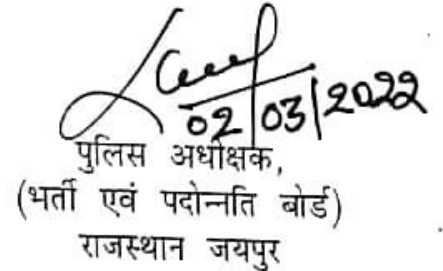 02/03/2022
पुलिस अधीक्षक,
(भर्ती एवं पदोन्नति बोर्ड)
राजस्थान जयपुर